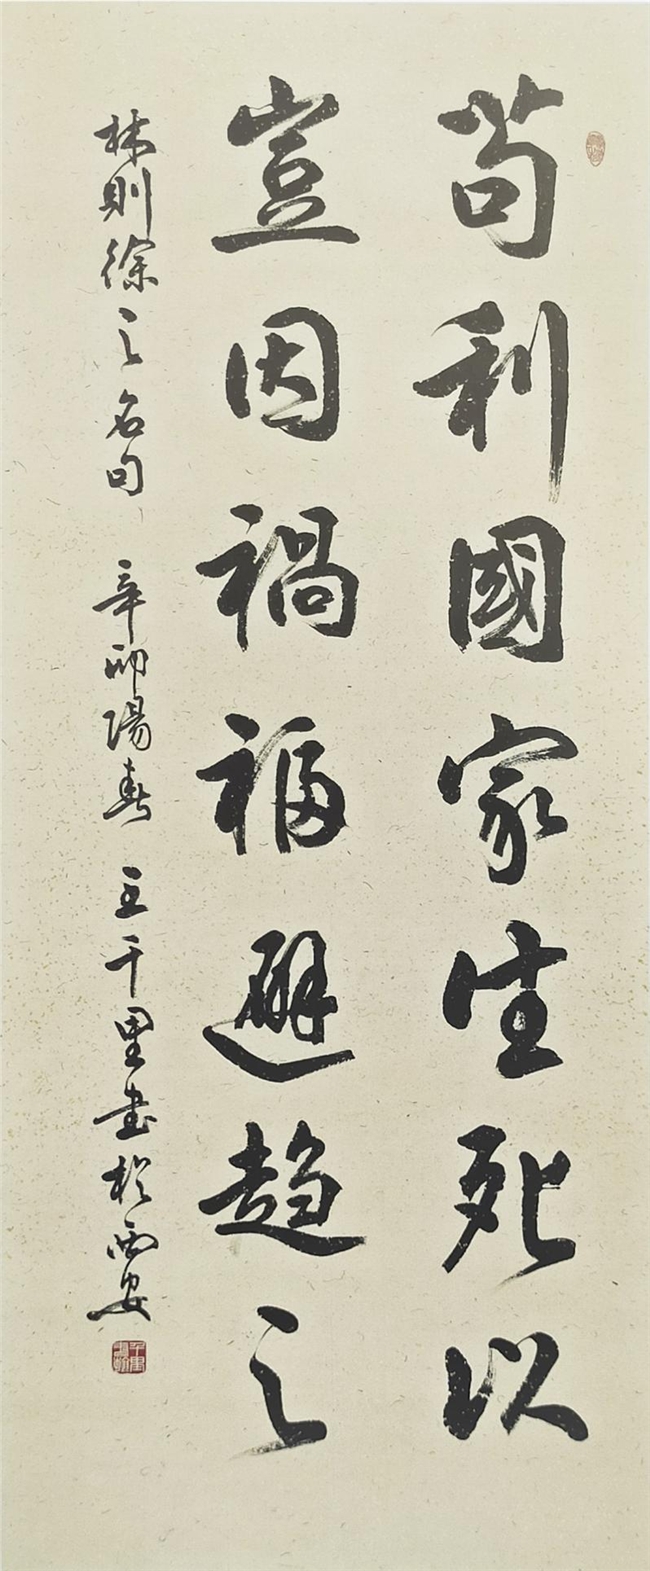 苟利國家生死以
豈因禍福避趨之
林則徐之名句 辛卯陽春 王千里書於西安